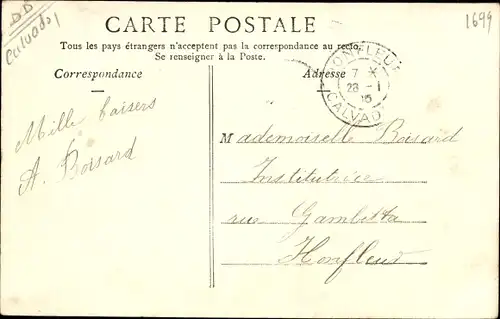 DD
Calvados
1699
CARTE POSTALE
Tous les pays étrangers n'acceptent pas la correspondance au recto.
Se renseigner à la Poste.
Correspondance
Adresse
HONFLEUR
7 *
23 - 1
05
CALVAD
Mille baisers
A. Boisard
Mademoiselle Boisard
Institutrice
rue Gambetta
Honfleur